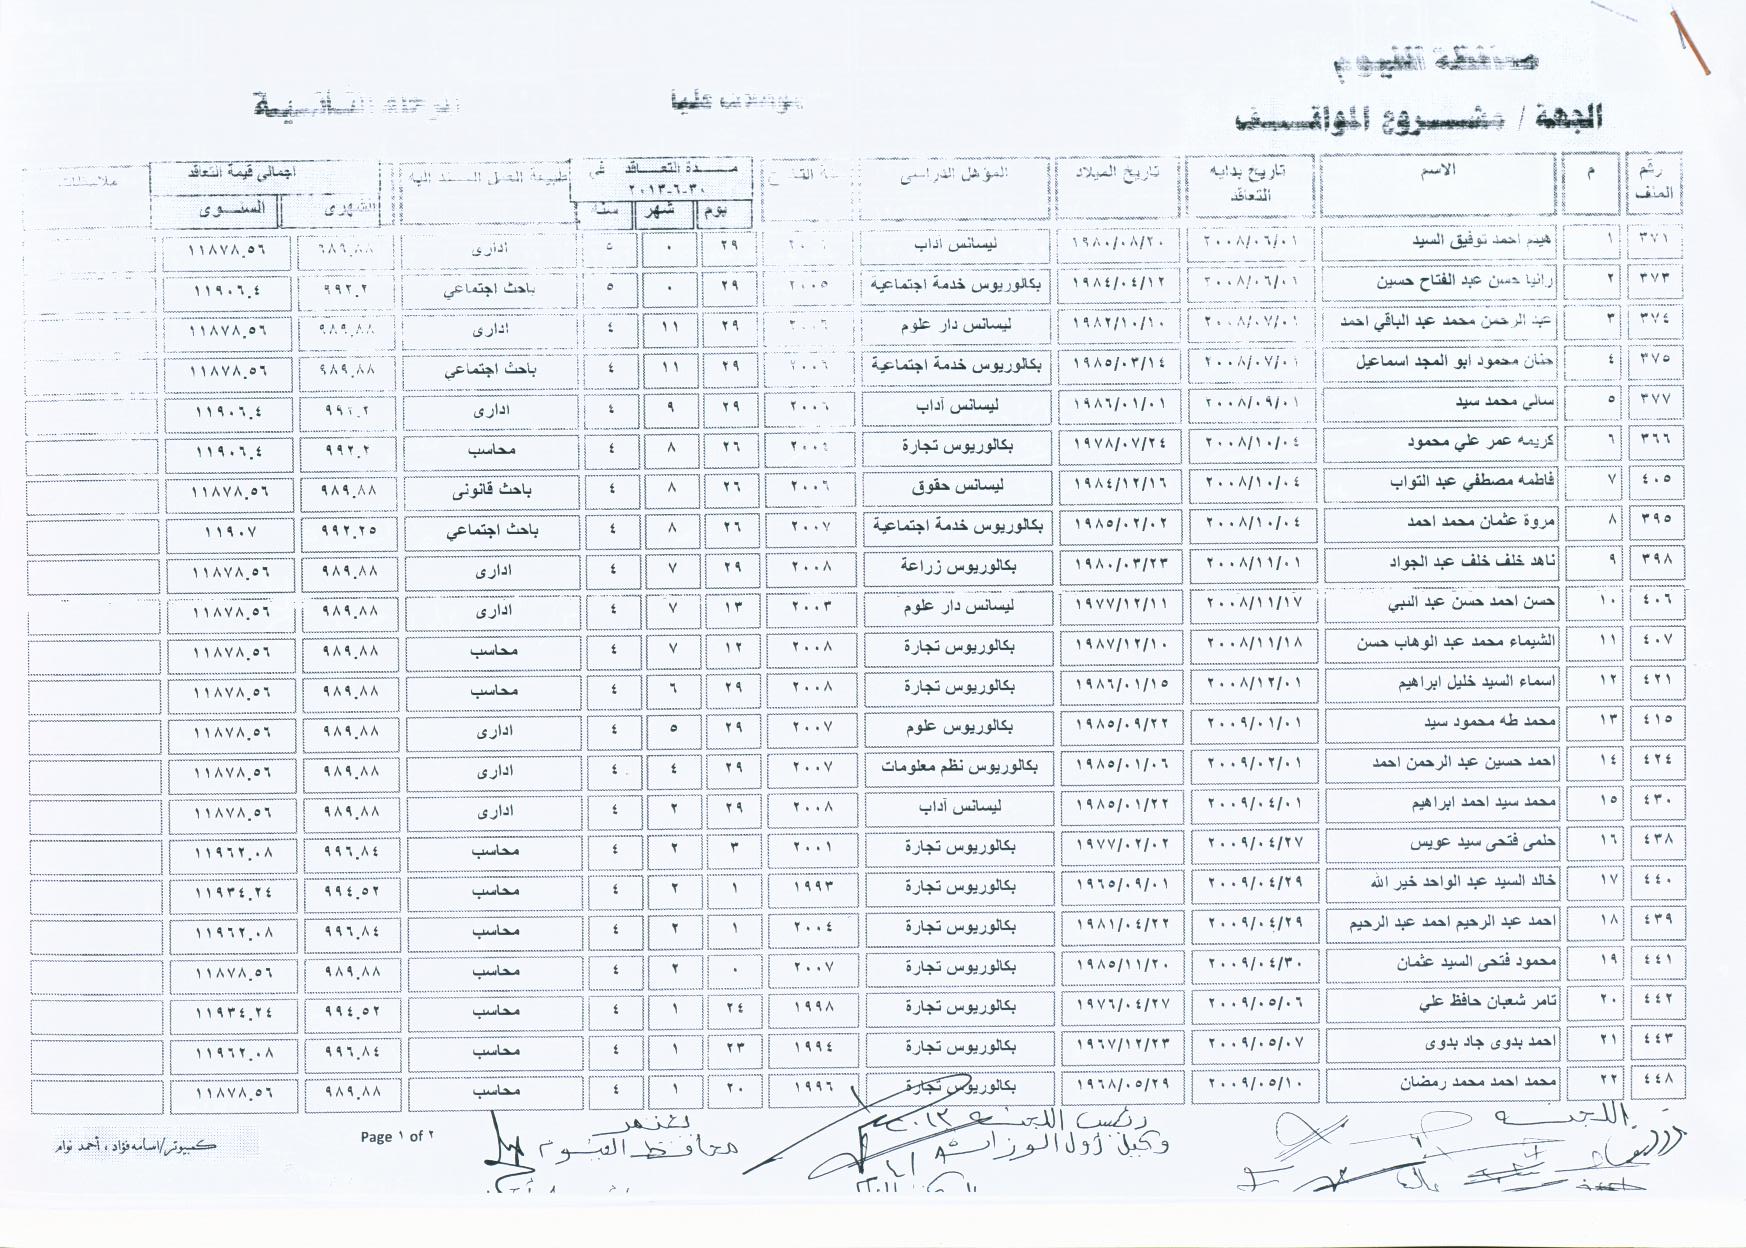 محافظة الفيوم
مؤهلات عليا
المرحلة الثانية
الجهة / مشروع المواقف
رقم الملف م الاسم تاريخ بدايه التعاقد تاريخ الميلاد المؤهل الدراسى مدة التعاقد في ٣٠-٦-٢٠١٣ طبيعة العمل المسند اليه اجمالى قيمة التعاقد ملاحظات
يوم شهر سنه الشهرى السنوى
٣٧١ ١ هيثم احمد توفيق السيد ٢٠٠٨/٠٦/٠١ ١٩٨٠/٠٨/٢٠ ليسانس آداب ٢٩ ٠ ٥ ادارى ٩٨٩.٨٨ ١١٨٧٨.٥٦
٣٧٣ ٢ رانيا حسن عبد الفتاح حسين ٢٠٠٨/٠٦/٠١ ١٩٨٤/٠٤/١٢ بكالوريوس خدمة اجتماعية ٢٠٠٥ ٢٩ ٠ ٥ باحث اجتماعي ٩٩٢.٢ ١١٩٠٦.٤
٣٧٤ ٣ عبد الرحمن محمد عبد الباقي احمد ٢٠٠٨/٠٧/٠١ ١٩٨٢/١٠/١٠ ليسانس دار علوم ٢٠٠٦ ٢٩ ١١ ٤ ادارى ٩٨٩.٨٨ ١١٨٧٨.٥٦
٣٧٥ ٤ حنان محمود ابو المجد اسماعيل ٢٠٠٨/٠٧/٠١ ١٩٨٥/٠٣/١٤ بكالوريوس خدمة اجتماعية ٢٠٠٦ ٢٩ ١١ ٤ باحث اجتماعي ٩٨٩.٨٨ ١١٨٧٨.٥٦
٣٧٧ ٥ سالي محمد سيد ٢٠٠٨/٠٩/٠١ ١٩٨٦/٠١/٠١ ليسانس آداب ٢٠٠٦ ٢٩ ٩ ٤ ادارى ٩٩٢.٢ ١١٩٠٦.٤
٣٦٦ ٦ كريمه عمر علي محمود ٢٠٠٨/١٠/٠٤ ١٩٧٨/٠٧/٢٤ بكالوريوس تجارة ٢٦ ٨ ٤ محاسب ٩٩٢.٢ ١١٩٠٦.٤
٤٠٥ ٧ فاطمه مصطفي عبد التواب ٢٠٠٨/١٠/٠٤ ١٩٨٤/١٢/١٦ ليسانس حقوق ٢٠٠٦ ٢٦ ٨ ٤ باحث قانونى ٩٨٩.٨٨ ١١٨٧٨.٥٦
٣٩٥ ٨ مروة عثمان محمد احمد ٢٠٠٨/١٠/٠٤ ١٩٨٥/٠٢/٠٢ بكالوريوس خدمة اجتماعية ٢٠٠٧ ٢٦ ٨ ٤ باحث اجتماعي ٩٩٢.٢٥ ١١٩٠٧
٣٩٨ ٩ ناهد خلف خلف عبد الجواد ٢٠٠٨/١١/٠١ ١٩٨٠/٠٣/٢٣ بكالوريوس زراعة ٢٠٠٨ ٢٩ ٧ ٤ ادارى ٩٨٩.٨٨ ١١٨٧٨.٥٦
٤٠٦ ١٠ حسن احمد حسن عبد النبي ٢٠٠٨/١١/١٧ ١٩٧٧/١٢/١١ ليسانس دار علوم ٢٠٠٣ ١٣ ٧ ٤ ادارى ٩٨٩.٨٨ ١١٨٧٨.٥٦
٤٠٧ ١١ الشيماء محمد عبد الوهاب حسن ٢٠٠٨/١١/١٨ ١٩٨٧/١٢/١٠ بكالوريوس تجارة ٢٠٠٨ ١٢ ٧ ٤ محاسب ٩٨٩.٨٨ ١١٨٧٨.٥٦
٤٢١ ١٢ اسماء السيد خليل ابراهيم ٢٠٠٨/١٢/٠١ ١٩٨٦/٠١/١٥ بكالوريوس تجارة ٢٠٠٨ ٢٩ ٦ ٤ محاسب ٩٨٩.٨٨ ١١٨٧٨.٥٦
٤١٥ ١٣ محمد طه محمود سيد ٢٠٠٩/٠١/٠١ ١٩٨٥/٠٩/٢٢ بكالوريوس علوم ٢٠٠٧ ٢٩ ٥ ٤ ادارى ٩٨٩.٨٨ ١١٨٧٨.٥٦
٤٢٤ ١٤ احمد حسين عبد الرحمن احمد ٢٠٠٩/٠٢/٠١ ١٩٨٥/٠١/٠٦ بكالوريوس نظم معلومات ٢٠٠٧ ٢٩ ٤ ٤ ادارى ٩٨٩.٨٨ ١١٨٧٨.٥٦
٤٣٠ ١٥ محمد سيد احمد ابراهيم ٢٠٠٩/٠٤/٠١ ١٩٨٥/٠١/٢٢ ليسانس آداب ٢٠٠٨ ٢٩ ٢ ٤ ادارى ٩٨٩.٨٨ ١١٨٧٨.٥٦
٤٣٨ ١٦ حلمى فتحى سيد عويس ٢٠٠٩/٠٤/٢٧ ١٩٧٧/٠٢/٠٢ بكالوريوس تجارة ٢٠٠١ ٣ ٢ ٤ محاسب ٩٩٦.٨٤ ١١٩٦٢.٠٨
٤٤٠ ١٧ خالد السيد عبد الواحد خير الله ٢٠٠٩/٠٤/٢٩ ١٩٦٥/٠٩/٠١ بكالوريوس تجارة ١٩٩٣ ١ ٢ ٤ محاسب ٩٩٤.٥٢ ١١٩٣٤.٢٤
٤٣٩ ١٨ احمد عبد الرحيم احمد عبد الرحيم ٢٠٠٩/٠٤/٢٩ ١٩٨١/٠٤/٢٢ بكالوريوس تجارة ٢٠٠٤ ١ ٢ ٤ محاسب ٩٩٦.٨٤ ١١٩٦٢.٠٨
٤٤١ ١٩ محمود فتحى السيد عثمان ٢٠٠٩/٠٤/٣٠ ١٩٨٥/١١/٢٠ بكالوريوس تجارة ٢٠٠٧ ٠ ٢ ٤ محاسب ٩٨٩.٨٨ ١١٨٧٨.٥٦
٤٤٢ ٢٠ تامر شعبان حافظ علي ٢٠٠٩/٠٥/٠٦ ١٩٧٦/٠٤/٢٧ بكالوريوس تجارة ١٩٩٨ ٢٤ ١ ٤ محاسب ٩٩٤.٥٢ ١١٩٣٤.٢٤
٤٤٣ ٢١ احمد بدوى جاد بدوى ٢٠٠٩/٠٥/٠٧ ١٩٦٧/١٢/٢٣ بكالوريوس تجارة ١٩٩٤ ٢٣ ١ ٤ محاسب ٩٩٦.٨٤ ١١٩٦٢.٠٨
٤٤٨ ٢٢ محمد احمد محمد رمضان ٢٠٠٩/٠٥/١٠ ١٩٦٨/٠٥/٢٩ بكالوريوس تجارة ١٩٩٦ ٢٠ ١ ٤ محاسب ٩٨٩.٨٨ ١١٨٧٨.٥٦
اللجنة رئيس اللجنة يعتمد
وكيل أول الوزارة محافظ الفيوم
Page ١ of ٢
كمبيوتر/اسامه فؤاد ، أحمد نوام